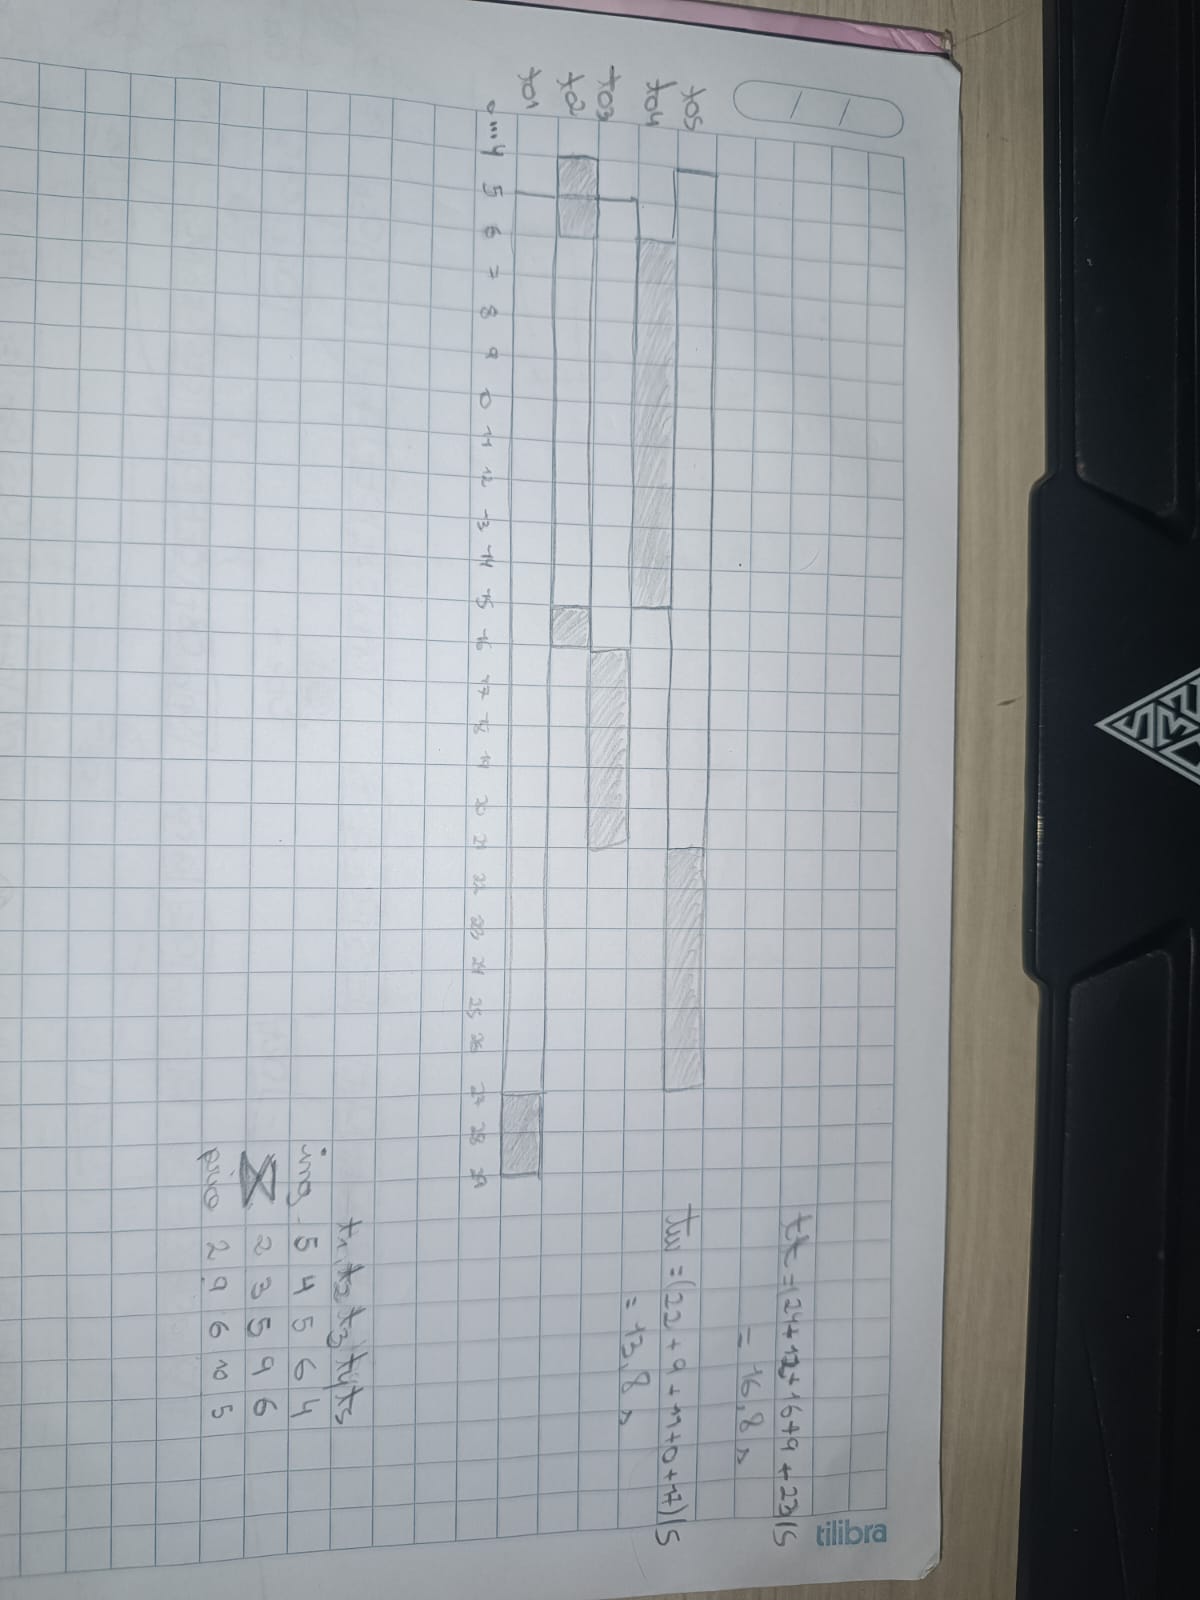 tilibra
tt = (24+12+16+9+23)/5
= 16,8 s
tw = (22+9+11+0+17)/5
= 13,8 s
t05
t04
t03
t02
t01
0 ... 4 5 6 7 8 9 10 11 12 13 14 15 16 17 18 19 20 21 22 23 24 25 26 27 28 29
t1 t2 t3 t4 t5
ing 5 4 5 6 4
2 3 5 9 6
prio 2 9 6 10 5